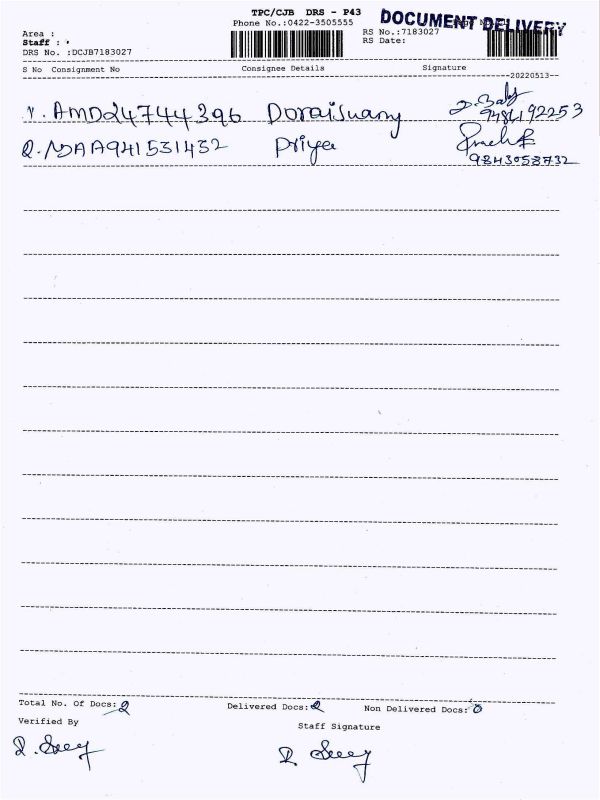 TPC/CJB DRS - P43
Phone No.:0422-3505555
DOCUMENT DELIVERY
Area :
Staff :
DRS No. :DCJB7183027
RS No.:7183027
RS Date:
S No Consignment No Consignee Details Signature
--20220513--
1. AMD24744396 Doraisuamy 9486192253
2. NDAA941531452 Priya 9843058732
Total No. Of Docs: 2 Delivered Docs: 2 Non Delivered Docs: 0
Verified By Staff Signature